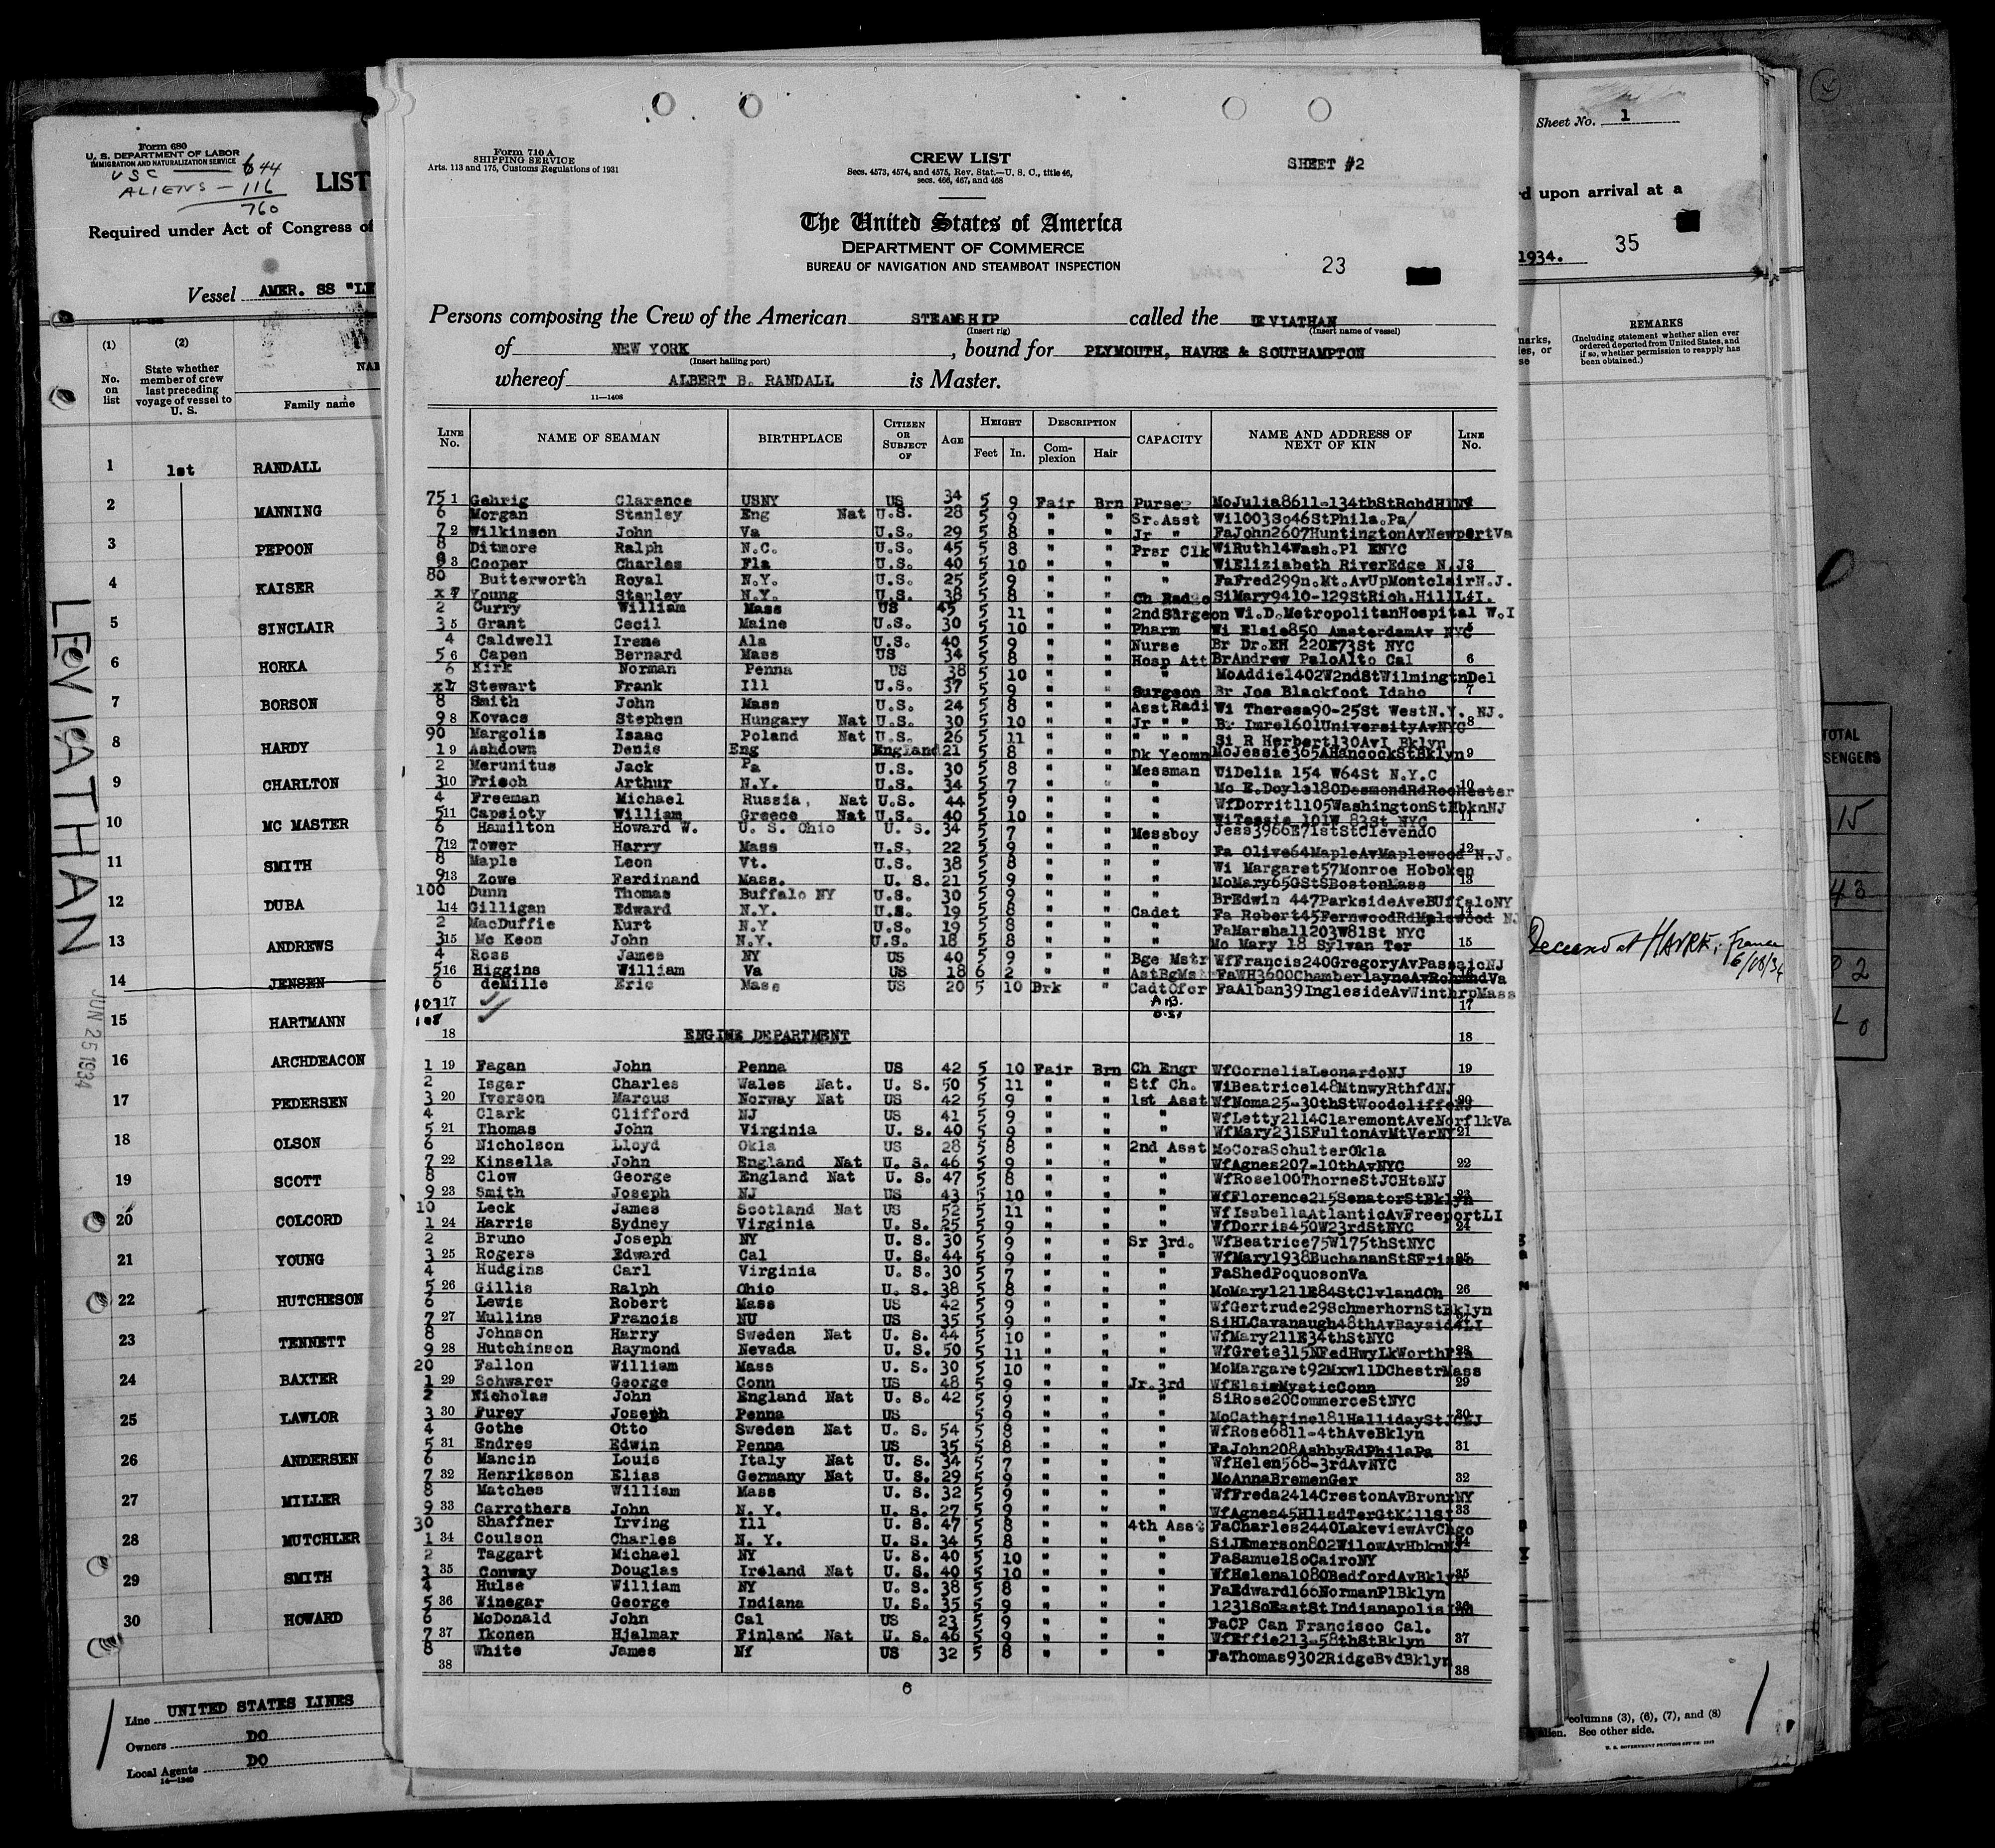 Form 680
U. S. DEPARTMENT OF LABOR
IMMIGRATION AND NATURALIZATION SERVICE
USC — 644
ALIENS — 116
760
LIST
Required under Act of Congress of
Vessel AMER. SS "LE
(1) (2)
No. on list
State whether member of crew last preceding voyage of vessel to U. S.
Family name
1 1st RANDALL
2 MANNING
3 PEPOON
4 KAISER
5 SINCLAIR
6 HORKA
7 BORSON
8 HARDY
9 CHARLTON
10 MC MASTER
11 SMITH
12 DUBA
13 ANDREWS
14 JENSEN
15 HARTMANN
16 ARCHDEACON
17 PEDERSEN
18 OLSON
19 SCOTT
20 COLCORD
21 YOUNG
22 HUTCHESON
23 TENNETT
24 BAXTER
25 LAWLOR
26 ANDERSEN
27 MILLER
28 MUTCHLER
29 SMITH
30 HOWARD
Line UNITED STATES LINES
Owners DO
Local Agents DO
14—1240
LEVIATHAN
JUN 25 1934
Form 710 A
SHIPPING SERVICE
Arts. 113 and 175, Customs Regulations of 1931
CREW LIST
Secs. 4573, 4574, and 4575, Rev. Stat.—U. S. C., title 46,
secs. 466, 467, and 468
SHEET #2
The United States of America
DEPARTMENT OF COMMERCE
BUREAU OF NAVIGATION AND STEAMBOAT INSPECTION
23
Persons composing the Crew of the American STEAMSHIP called the LEVIATHAN
(Insert rig) (Insert name of vessel)
of NEW YORK, bound for PLYMOUTH, HAVRE & SOUTHAMPTON
(Insert hailing port)
whereof ALBERT B. RANDALL is Master.
11—1408
LINE No. NAME OF SEAMAN BIRTHPLACE CITIZEN OR SUBJECT OF AGE HEIGHT DESCRIPTION CAPACITY NAME AND ADDRESS OF NEXT OF KIN LINE No.
Feet In. Complexion Hair
75 1 Gehrig Clarence USNY US 34 5 9 Fair Brn Purser MoJulia8611-134thStRchdHlNY
6 Morgan Stanley Eng Nat U.S. 28 5 9 " " Sr.Asst Wi1003So46StPhila.Pa/
7 2 Wilkinson John Va U.S. 29 5 8 " " Jr " FaJohn2607HuntingtonAvNewportVa
8 Ditmore Ralph N.C. U.S. 45 5 8 " " Prsr Clk WiRuth14Wash.Pl ENYC
9 3 Cooper Charles Fla U.S. 40 5 10 " " " WiEliziabeth RiverEdge N.J3
80 Butterworth Royal N.Y. U.S. 25 5 9 " " " FaFred299n.Mt.AvUpMontclairN.J.
x Young Stanley N.Y. U.S. 38 5 8 " " Ch Radio SiMary9410-129StRich.HillL.I.
2 Curry William Mass US 45 5 11 " " 2ndSurgeon Wi.D.MetropolitanHospital W.I
3 5 Grant Cecil Maine U.S. 30 5 10 " " Pharm Wi Elsie850 AmsterdamAv NYC
4 Caldwell Irene Ala U.S. 40 5 9 " " Nurse Br Dr.EH 220E73St NYC
5 6 Capen Bernard Mass US 34 5 8 " " Hosp Att BrAndrew PaloAlto Cal 6
6 Kirk Norman Penna US 38 5 10 " " " MoAddie1402W2ndStWilmingtnDel
x 7 Stewart Frank Ill U.S. 37 5 9 " " Surgeon Br Joa Blackfoot Idaho 7
8 Smith John Mass U.S. 24 5 8 " " Asst Radi Wi Theresa90-25St WestN.Y. NJ.
9 8 Kovacs Stephen Hungary Nat U.S. 30 5 10 " " Jr " " Br Imre1601UniversityAvNYC 8
90 Margolis Isaac Poland Nat U.S. 26 5 11 " " " " " Si R Herbert130AvI Bklyn
1 9 Ashdown Denis Eng England 21 5 8 " " Dk Yeomn MoJessie365AHancockStBklyn 9
2 Merunitus Jack Pa U.S. 30 5 8 " " Messman WiDelia 154 W64St N.Y.C
3 10 Frisch Arthur N.Y. U.S. 34 5 7 " " " Mo E.Doyl3180DesmondRdRochester 10
4 Freeman Michael Russia, Nat U.S. 44 5 9 " " " WfDorrit1105WashingtonStHbknNJ
5 11 Capsioty William Greece Nat U.S. 40 5 10 " " " WiTessie 101W 83St NYC 11
6 Hamilton Howard W. U. S. Ohio U. S. 34 5 7 " " Messboy Jess3966E71stStClevendO
7 12 Tower Harry Mass U.S. 22 5 9 " " " Fa Olive64MapleAvMaplewood N.J. 12
8 Maple Leon Vt. U.S. 38 5 8 " " " Wi Margaret57Monroe Hoboken
9 13 Zowe Ferdinand Mass. U. S. 21 5 9 " " " MoMary65GStSBostonMass 13
100 Dunn Thomas Buffalo NY U.S. 30 5 9 " " " BrEdwin 447ParksideAveBUffaloNY
1 14 Gilligan Edward N.Y. U.S. 19 5 8 " " Cadet Fa Robert45FernwoodRdMplewood NJ
2 MacDuffie Kurt N.Y U.S. 19 5 8 " " " FaMarshall203W81St NYC
3 15 Mc Keon John N.Y. U.S. 18 5 8 " " " Mo Mary 18 Sylvan Ter 15
4 Ross James NY US 40 5 9 " " Bge Mstr WfFrancis240GregoryAvPassaicNJ
5 16 Higgins William Va US 18 6 2 " " AstBgMstr FaWH3600ChamberlayneAvRchmndVa
6 deMille Eric Mass US 20 5 10 Brk " CadtOfcr FaAlban39InglesideAvWinthrpMass
107 17 A.B. 17
108 O.S.
18 ENGINE DEPARTMENT 18
1 19 Fagan John Penna US 42 5 10 Fair Brn Ch Engr WfCorneliaLeonardoNJ 19
2 Isgar Charles Wales Nat. U. S. 50 5 11 " " Stf Ch. WiBeatrice148MtnwyRthfdNJ
3 20 Iverson Marcus Norway Nat US 42 5 9 " " 1st Asst WfNoma25-30thStWoodcliffeNJ 20
4 Clark Clifford NJ US 41 5 9 " " " WfLetty2114ClaremontAveNorflkVa
5 21 Thomas John Virginia U. S. 40 5 9 " " " WfMary231SFultonAvMtVerNY 21
6 Nicholson Lloyd Okla US 28 5 8 " " 2nd Asst MoCoraSchulterOkla
7 22 Kinsella John England Nat U. S. 46 5 9 " " " WfAgnes207-10thAvNYC 22
8 Clow George England Nat U. S. 47 5 8 " " " WfRose100ThorneStJCHtsNJ
9 23 Smith Joseph NJ US 43 5 10 " " " WfFlorence215SenatorStBklyn 23
10 Leck James Scotland Nat US 52 5 11 " " " WfIsabellaAtlanticAvFreeportLI
1 24 Harris Sydney Virginia U. S. 25 5 9 " " " WfDorris450W23rdStNYC 24
2 Bruno Joseph NY U. S. 30 5 9 " " Sr 3rd. WfBeatrice75W175thStNYC
3 25 Rogers Edward Cal U. S. 44 5 9 " " " WfMary1938BuchananStSFrisco 25
4 Hudgins Carl Virginia U. S. 30 5 7 " " " FaShedPoquosonVa
5 26 Gillis Ralph Ohio U. S. 38 5 8 " " " MoMary1211E84StClvlandOh 26
6 Lewis Robert Mass US 42 5 9 " " " WfGertrude29SchmerhornStBklyn
7 27 Mullins Francis NU US 35 5 9 " " " SiHLCavanaugh48thAvBaysideLI
8 Johnson Harry Sweden Nat U. S. 44 5 10 " " " WfMary211E34thStNYC
9 28 Hutchinson Raymond Nevada U. S. 50 5 11 " " " WfGrete315NFedHwyLkWorthFla 28
20 Fallon William Mass U. S. 30 5 10 " " " MoMargaret92Mxw11DChestrMass
1 29 Schwarer George Conn US 48 5 9 " " Jr.3rd WfElsieMysticConn 29
2 Nicholas John England Nat U. S. 42 5 9 " " " SiRose20CommerceStNYC
3 30 Furey Joseph Penna US 5 9 " " " MoCatherine181HallidayStJCNJ 30
4 Gothe Otto Sweden Nat U. S. 54 5 8 " " " WfRose6811-4thAveBklyn
5 31 Endres Edwin Penna US 35 5 8 " " " FaJohn208AshbyRdPhilaPa 31
6 Mancin Louis Italy Nat U. S. 34 5 7 " " " WfHelen568-3rdAvNYC
7 32 Henriksson Elias Germany Nat U. S. 29 5 9 " " " MoAnnaBremenGer 32
8 Matches William Mass U. S. 32 5 9 " " " WfFreda2414CrestonAvBronxNY
9 33 Carrothers John N. Y. U. S. 27 5 9 " " " WfAgnes45HllsdTerGtKillSI 33
30 Shaffner Irving Ill U. S. 47 5 8 " " 4th Asst FaCharles2440LakeviewAvChgo
1 34 Coulson Charles N. Y. U. S. 34 5 8 " " " SiJEmerson802WilowAvHbknNJ 34
2 Taggart Michael NY U. S. 40 5 10 " " " FaSamuelSoCairoNY
3 35 Conway Douglas Ireland Nat U. S. 40 5 10 " " " WfHelena1080BedfordAvBklyn 35
4 Hulse William NY U. S. 38 5 8 " " " FaEdward166NormanPlBklyn
5 36 Winegar George Indiana U. S. 35 5 9 " " " 1231SoEastStIndianapolisInd 36
6 McDonald John Cal US 23 5 9 " " " FaCP Can Francisco Cal.
7 37 Ikonen Hjalmar Finland Nat U. S. 46 5 9 " " " WfEffie213-58thStBklyn 37
8 White James NY US 32 5 8 " " " FaThomas9302RidgeBvdBklyn
38 38
Sheet No. 1
rd upon arrival at a
35
1934.
REMARKS
(Including statement whether alien ever ordered deported from United States, and if so, whether permission to reapply has been obtained.)
Deceased at HAVRE, France
6/18/34
TOTAL
SENGERS
15
43
columns (3), (6), (7), and (8)
alien. See other side.
U. S. GOVERNMENT PRINTING OFFICE